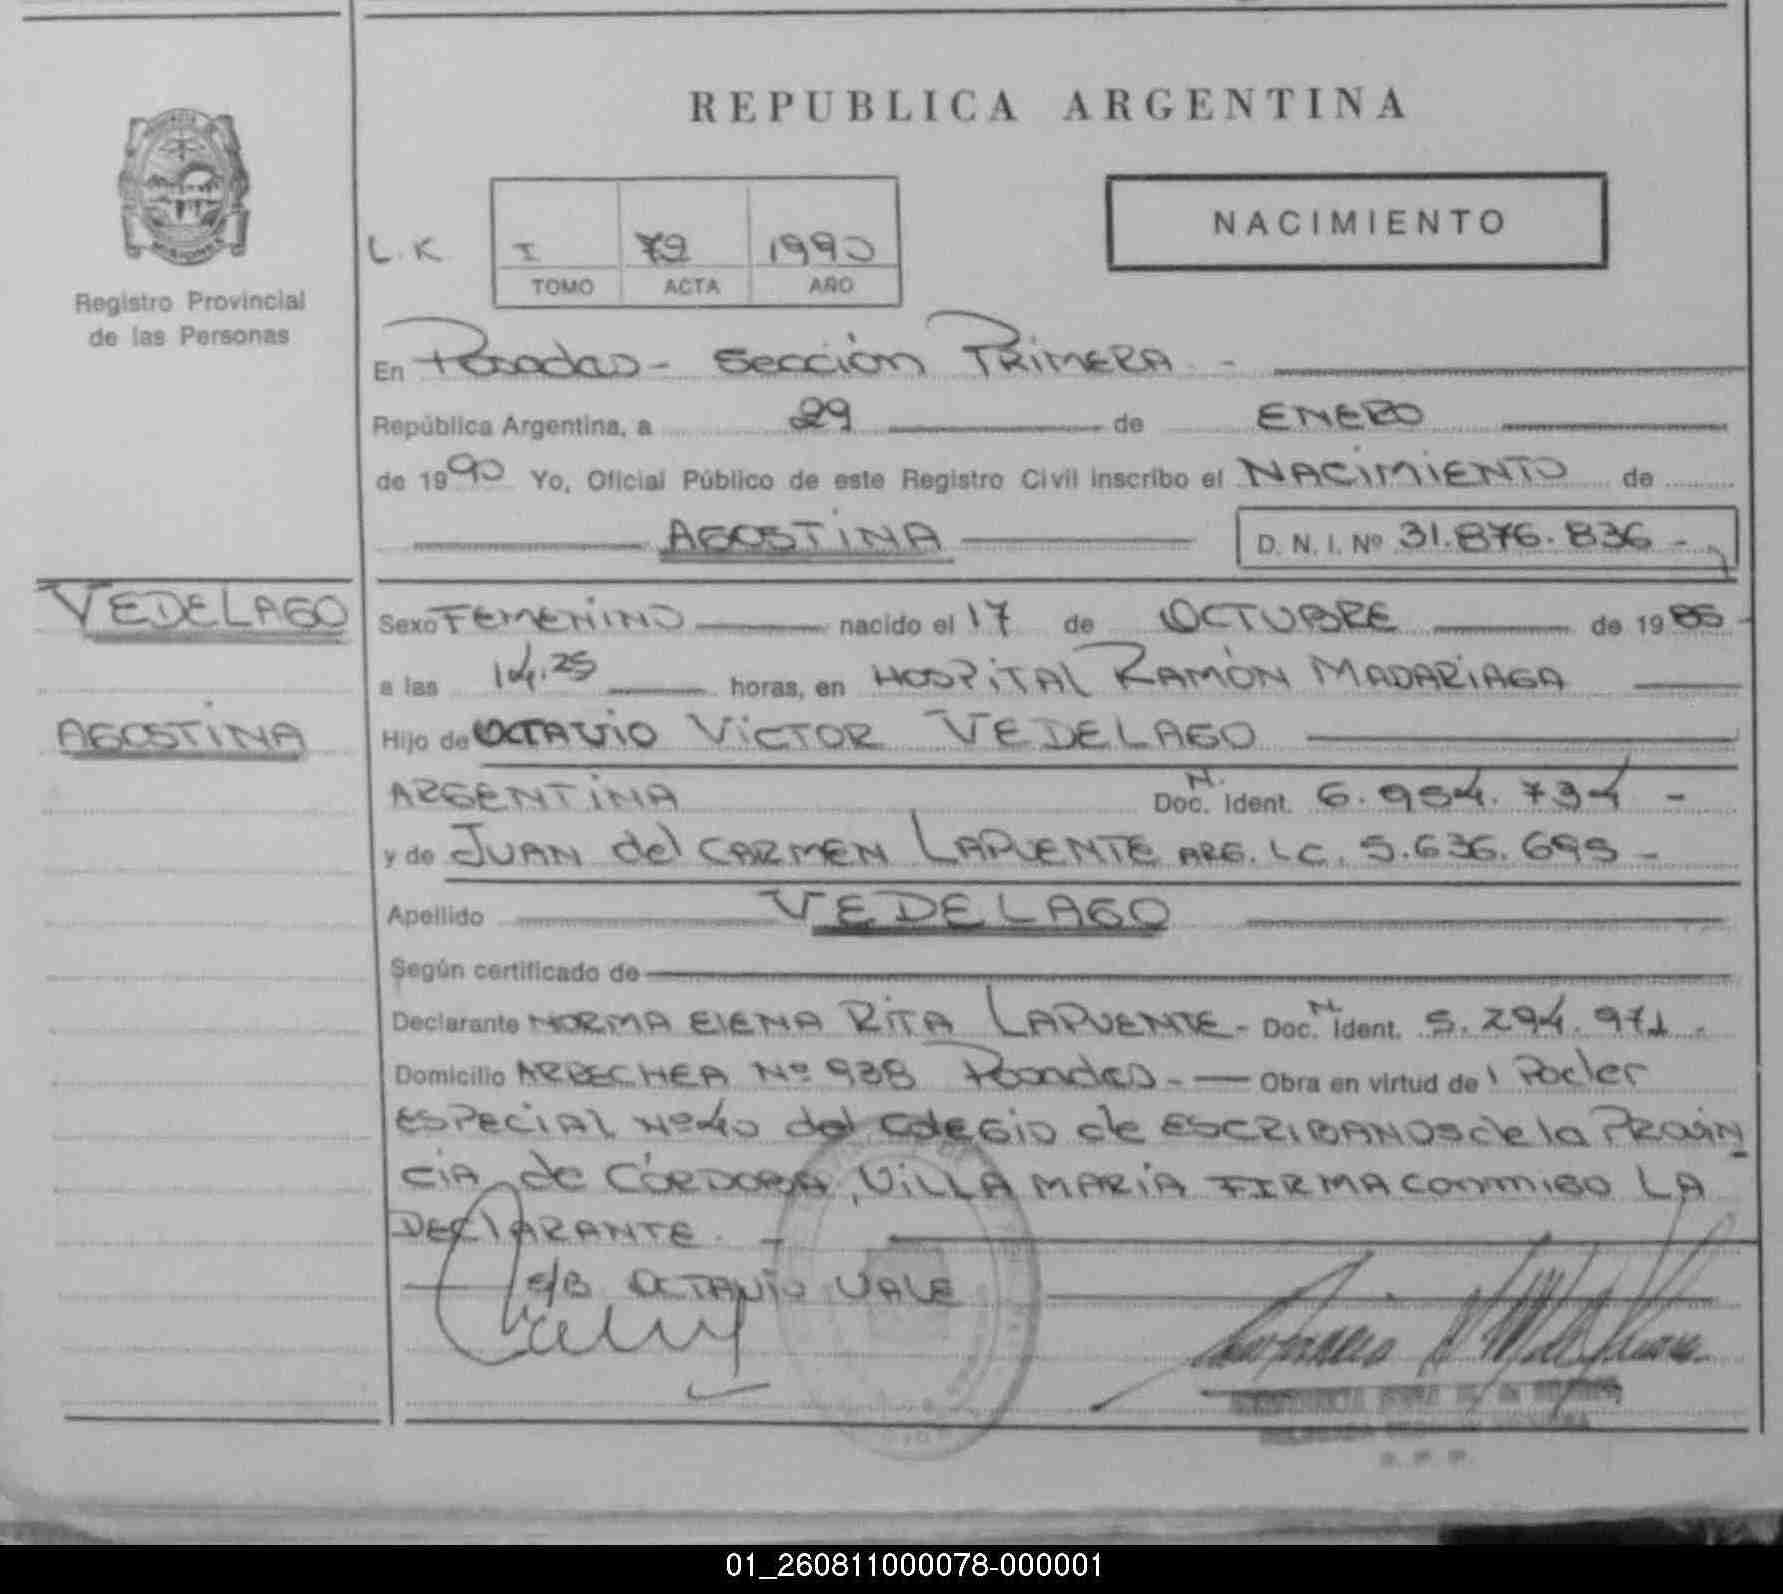 REPUBLICA ARGENTINA
NACIMIENTO
L.K. I 79 1990
TOMO ACTA AÑO
Registro Provincial
de las Personas
En Posadas - Sección PRIMERA -
República Argentina, a 29 de ENERO
de 1990 Yo, Oficial Público de este Registro Civil inscribo el NACIMIENTO de
AGOSTINA D. N. I. Nº 31.876.836 -
VEDELAGO
AGOSTINA
Sexo FEMENINO nacido el 17 de OCTUBRE de 1985 -
a las 14.25 horas, en HOSPITAL RAMÓN MADARIAGA
Hijo de OCTAVIO VICTOR VEDELAGO
ARGENTINA Doc. N. Ident. 6.954.734 -
y de JUAN del CARMEN LAPUENTE ARG. LC. 5.636.695 -
Apellido VEDELAGO
Según certificado de
Declarante NORMA ELENA RITA LAPUENTE - Doc. N. Ident. 5.294.971 -
Domicilio ARRECHEA Nº 938 Posadas - Obra en virtud de 1 Poder
ESPECIAL Nº 40 del COLEGIO de ESCRIBANOS de la PROVIN
CIA de CÓRDOBA, VILLA MARIA FIRMA conmigo LA
DECLARANTE. -
S/B OCTAVIO VALE
01_260811000078-000001